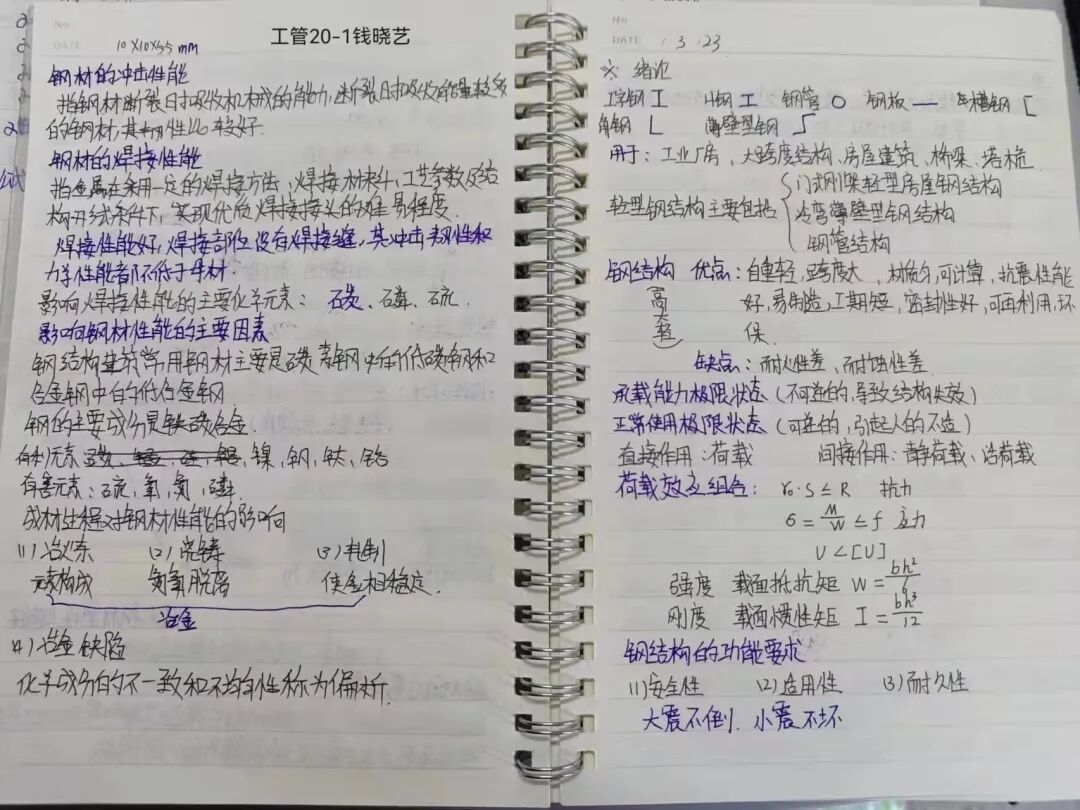 No
DATE 10×10×55 mm
工管20-1钱晓艺
钢材的冲击性能
指钢材断裂时吸收机械的能力,断裂时吸收能量较多
的钢材,其韧性比较好.
钢材的焊接性能
指金属在采用一定的焊接方法,焊接材料,工艺参数及结
构形式条件下,实现优质焊接接头的难易程度.
焊接性能好,焊接部位没有焊接缝,其冲击韧性和
力学性能都不低于母材.
影响焊接性能的主要化学元素: 碳、磷、硫.
影响钢材性能的主要因素
钢结构建筑常用钢材主要是碳素钢中的低碳钢和
合金钢中的低合金钢
钢的主要成分是铁碳合金.
有利元素 镍,钒,钛,铬
有害元素:硫,氧,氮,磷.
成材过程对钢材性能的影响
(1)冶炼 (2)浇铸 (3)轧制
元素构成 氮氧脱离 使金相稳定.
冶金
(4)冶金缺陷
化学成份的不一致和不均匀性称为偏析.
No
DATE 3 23
※ 绪论
工字钢 I H钢 工 钢管 O 钢板 — 槽钢 [
角钢 L 薄壁型钢
用于:工业厂房、大跨度结构、房屋建筑、桥梁、塔桅
轻型钢结构主要包括 { 门式刚架轻型房屋钢结构
冷弯薄壁型钢结构
钢管结构
钢结构 优点:自重轻,跨度大,材质匀,可计算,抗震性能
(高 好,易制造,工期短,密封性好,可再利用,环
大 保.
轻)
缺点:耐火性差,耐蚀性差.
承载能力极限状态(不可逆的,导致结构失效)
正常使用极限状态(可逆的,引起人的不适)
直接作用:荷载 间接作用:静荷载、活荷载
荷载效应组合: r₀·S≤R 抗力
σ=M/W≤f 应力
U<[U]
强度 截面抵抗矩 W=bh²/6
刚度 截面惯性矩 I=bh³/12
钢结构的功能要求
(1)安全性 (2)适用性 (3)耐久性
大震不倒.小震不坏